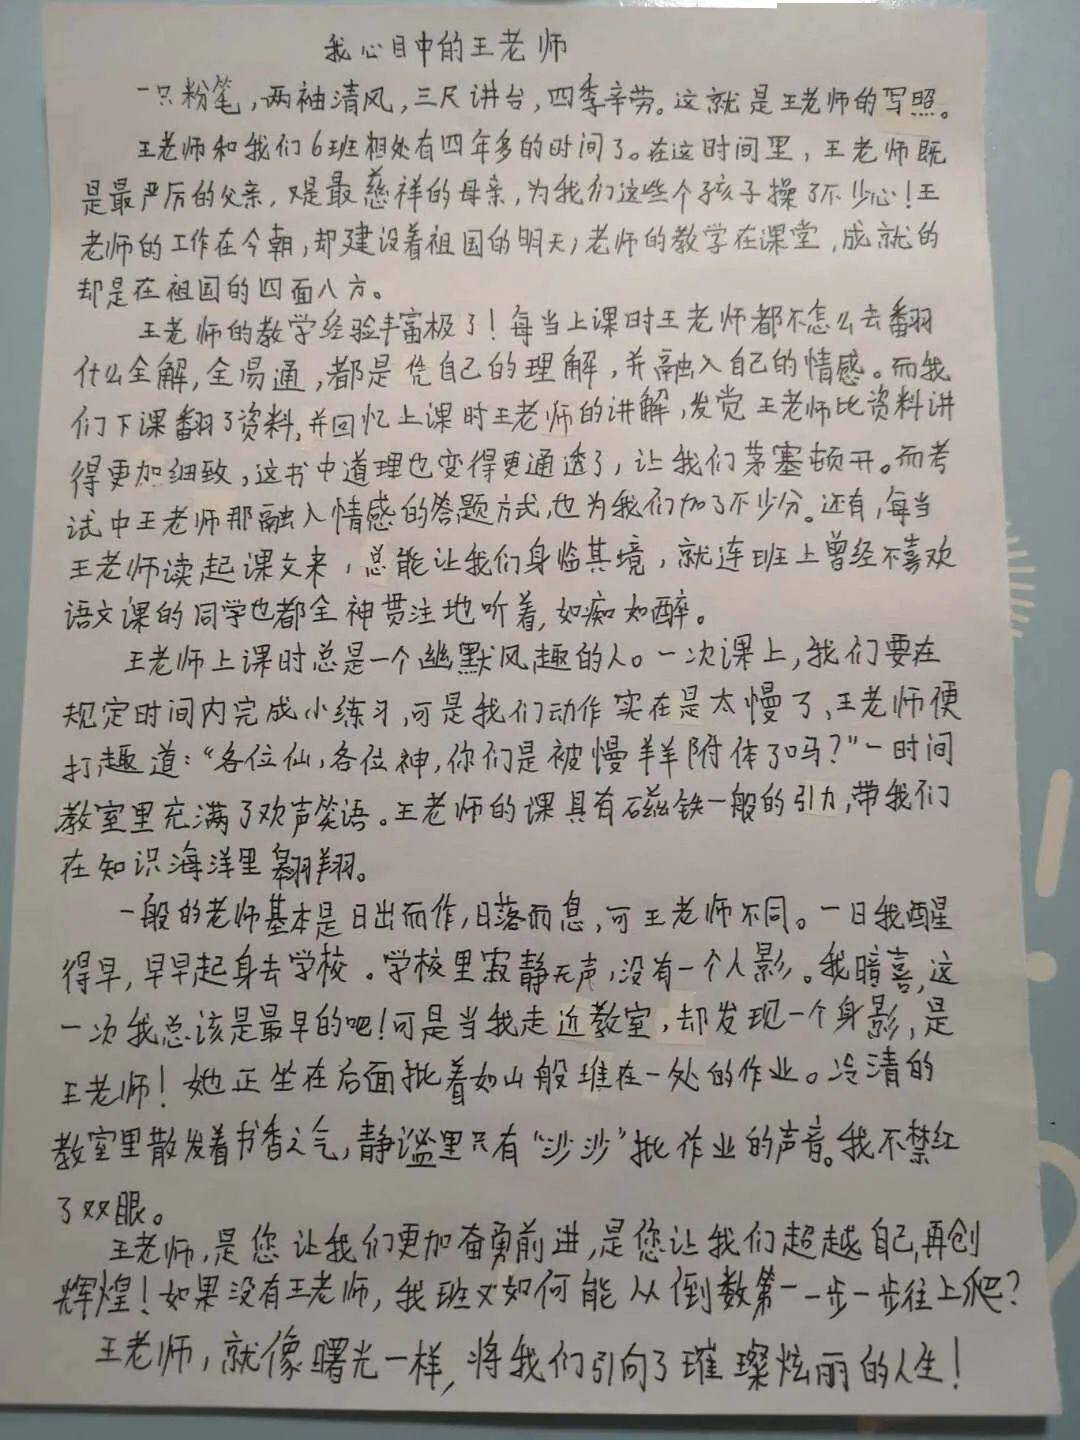 我心目中的王老师
一只粉笔，两袖清风，三尺讲台，四季辛劳。这就是王老师的写照。
王老师和我们6班相处有四年多的时间了。在这时间里，王老师既
是最严厉的父亲，又是最慈祥的母亲，为我们这些个孩子操了不少心！王
老师的工作在今朝，却建设着祖国的明天；老师的教学在课堂，成就的
却是在祖国的四面八方。
王老师的教学经验丰富极了！每当上课时王老师都不怎么去翻
什么全解，全易通，都是凭自己的理解，并融入自己的情感。而我
们下课翻了资料，并回忆上课时王老师的讲解，发觉王老师比资料讲
得更加细致，这书中道理也变得更通透了，让我们茅塞顿开。而考
试中王老师那融入情感的答题方式，也为我们加了不少分。还有，每当
王老师读起课文来，总能让我们身临其境，就连班上曾经不喜欢
语文课的同学也都全神贯注地听着，如痴如醉。
王老师上课时总是一个幽默风趣的人。一次课上，我们要在
规定时间内完成小练习，可是我们动作实在是太慢了、王老师便
打趣道：“各位仙，各位神，你们是被慢羊羊附体了吗？”一时间
教室里充满了欢声笑语。王老师的课具有磁铁一般的引力，带我们
在知识海洋里翱翔。
一般的老师基本是日出而作，日落而息，可王老师不同。一日我醒
得早，早早起身去学校。学校里寂静无声，没有一个人影。我暗喜，这
一次我总该是最早的吧！可是当我走近教室，却发现一个身影，是
王老师！她正坐在后面批着如山般堆在一处的作业。冷清的
教室里散发着书香之气，静谧里只有“沙沙”批作业的声音。我不禁红
了双眼。
王老师，是您让我们更加奋勇前进，是您让我们超越自己，再创
辉煌！如果没有王老师，我班又如何能从倒数第一一步一步往上爬？
王老师，就像曙光一样，将我们引向了璀璨炫丽的人生！